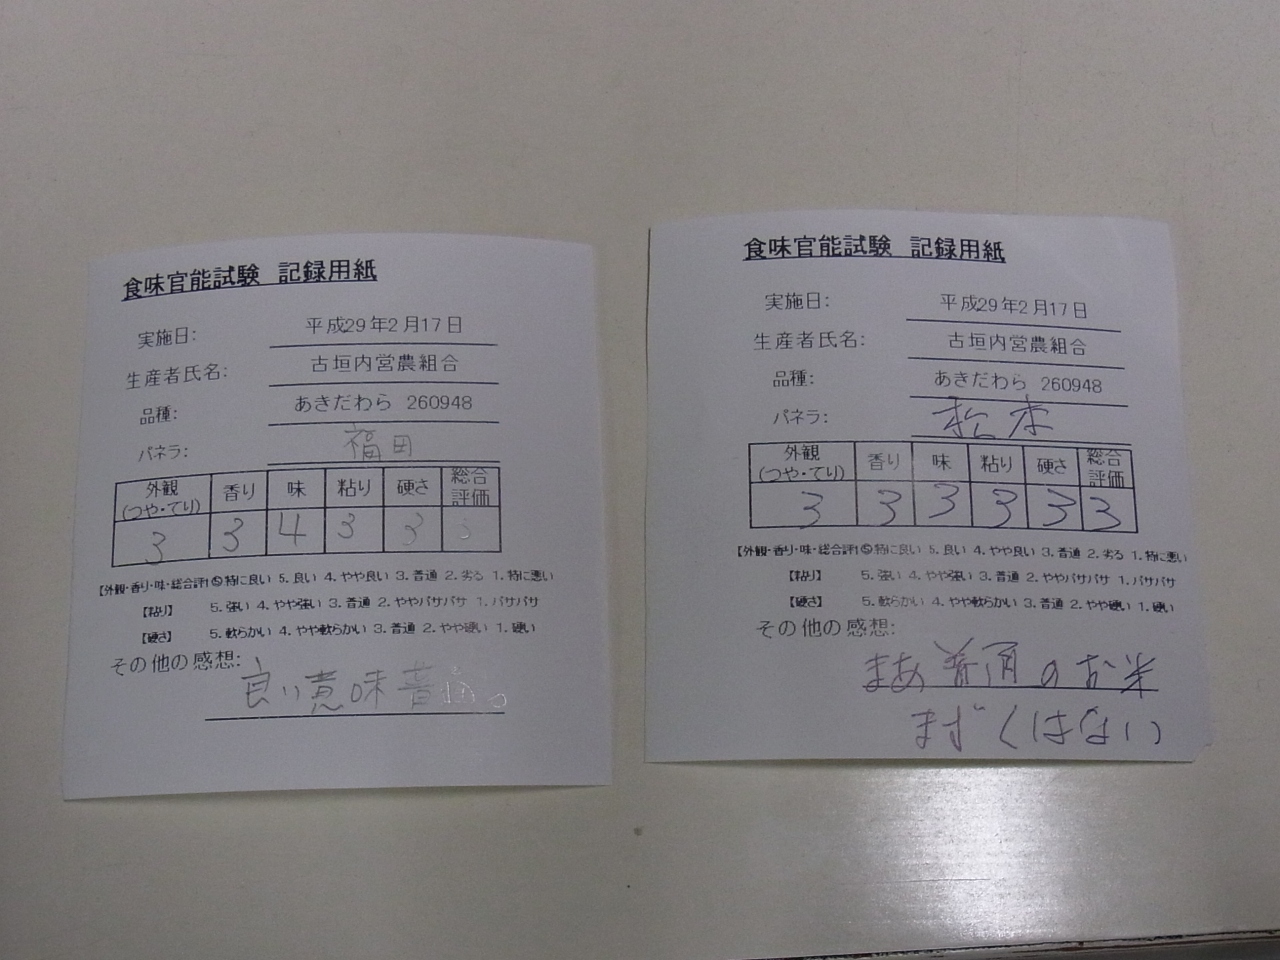 食味官能試験 記録用紙
実施日: 平成29年2月17日
生産者氏名: 古垣内営農組合
品種: あきだわら 260948
パネラ: 福田
外観(つや・てり) 香り 味 粘り 硬さ 総合評価
3 3 4 3 3 3
【外観・香り・味・総合評】⑤特に良い 5.良い 4.やや良い 3.普通 2.劣る 1.特に悪い
【粘り】 5.強い 4.やや強い 3.普通 2.ややパサパサ 1.パサパサ
【硬さ】 5.軟らかい 4.やや軟らかい 3.普通 2.やや硬い 1.硬い
その他の感想:
良い意味普通。
食味官能試験 記録用紙
実施日: 平成29年2月17日
生産者氏名: 古垣内営農組合
品種: あきだわら 260948
パネラ: 松本
外観(つや・てり) 香り 味 粘り 硬さ 総合評価
3 3 3 3 3 3
【外観・香り・味・総合評】⑤特に良い 5.良い 4.やや良い 3.普通 2.劣る 1.特に悪い
【粘り】 5.強い 4.やや強い 3.普通 2.ややパサパサ 1.パサパサ
【硬さ】 5.軟らかい 4.やや軟らかい 3.普通 2.やや硬い 1.硬い
その他の感想:
まあ普通のお米
まずくはない